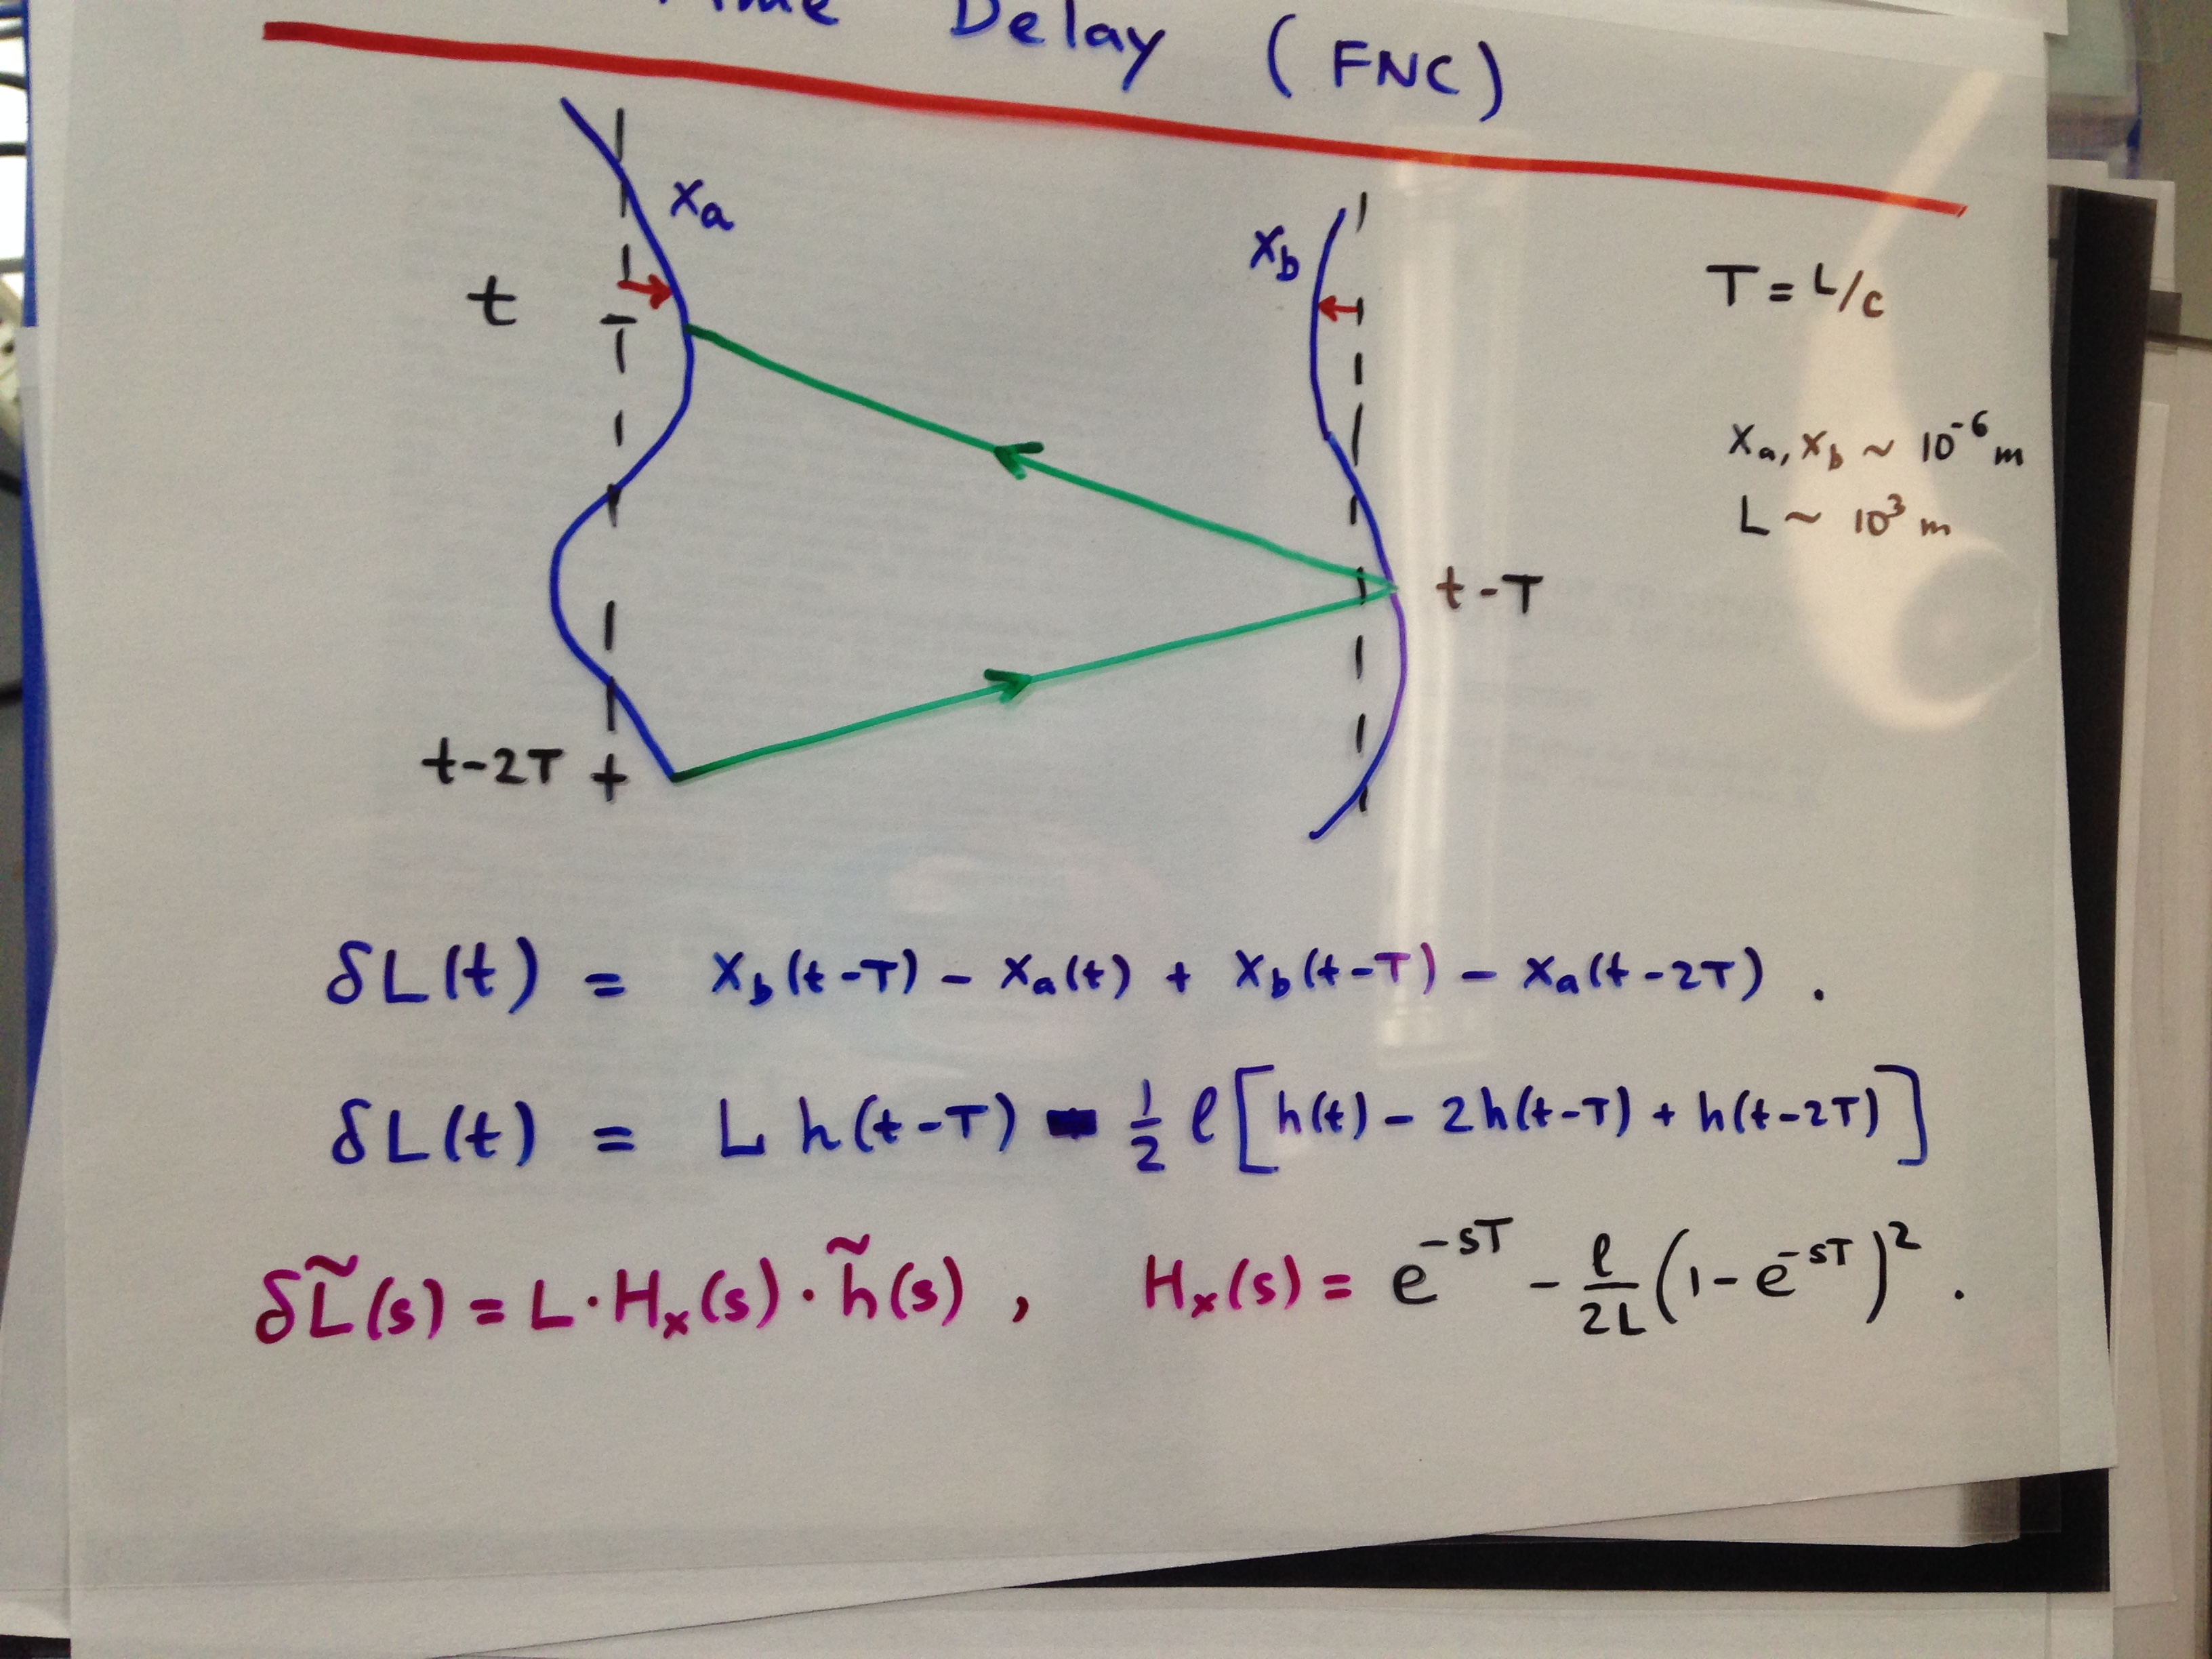 Time Delay (FNC)
xa
xb
t
T = L/c
xa, xb ~ 10⁻⁶ m
L ~ 10³ m
t-T
t-2T
δL(t) = xb(t-T) - xa(t) + xb(t-T) - xa(t-2T) .
δL(t) = L h(t-T) - ½ ℓ [h(t) - 2h(t-T) + h(t-2T)]
δL̃(s) = L·Hx(s)·h̃(s) , Hx(s) = e^{-sT} - ℓ/2L (1 - e^{-sT})² .